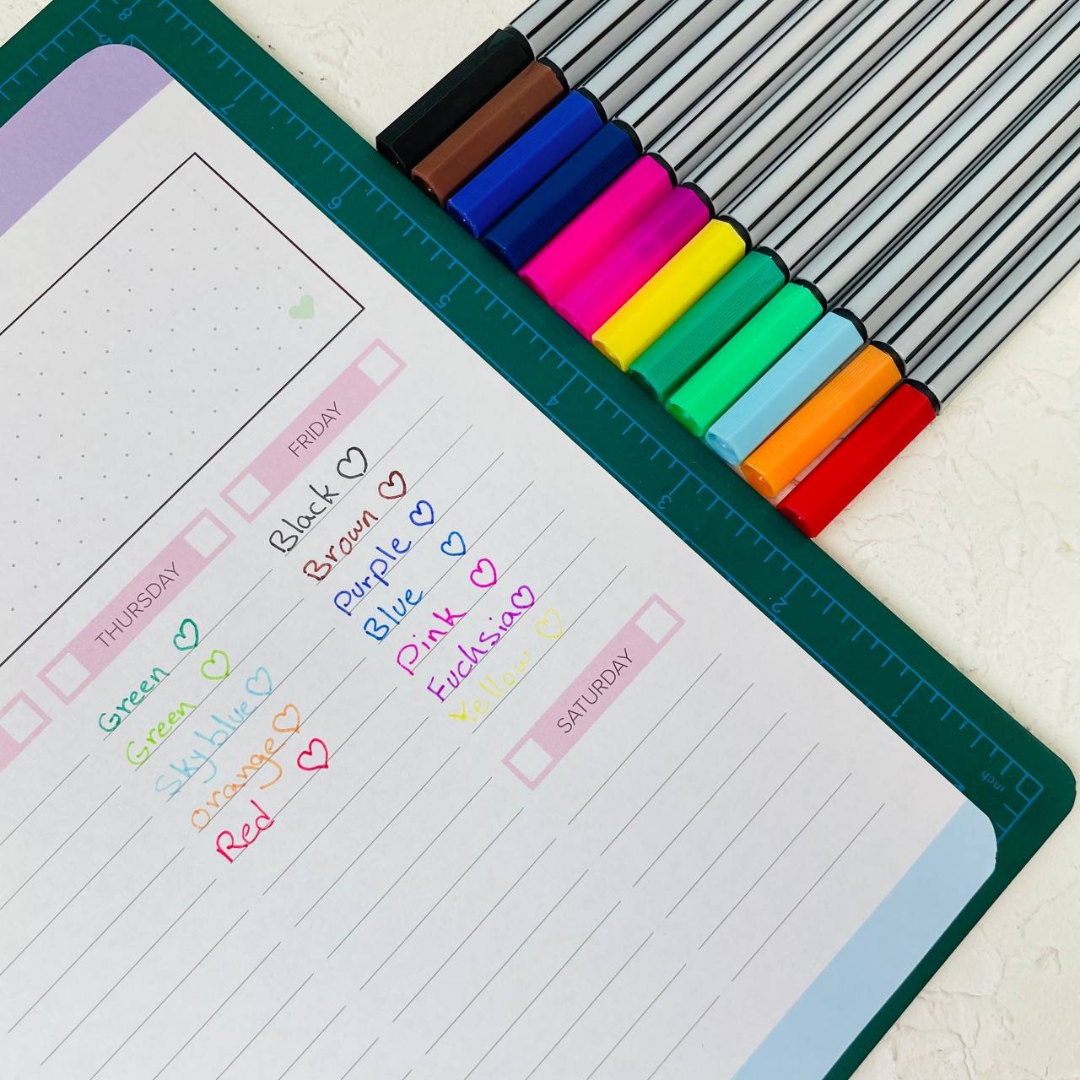 THURSDAY
Green
Green
Sky blue
Orange
Red
FRIDAY
Black
Brown
Purple
Blue
Pink
Fuchsia
Yellow
SATURDAY
8
7
6
5
4
3
2
1
0
inch